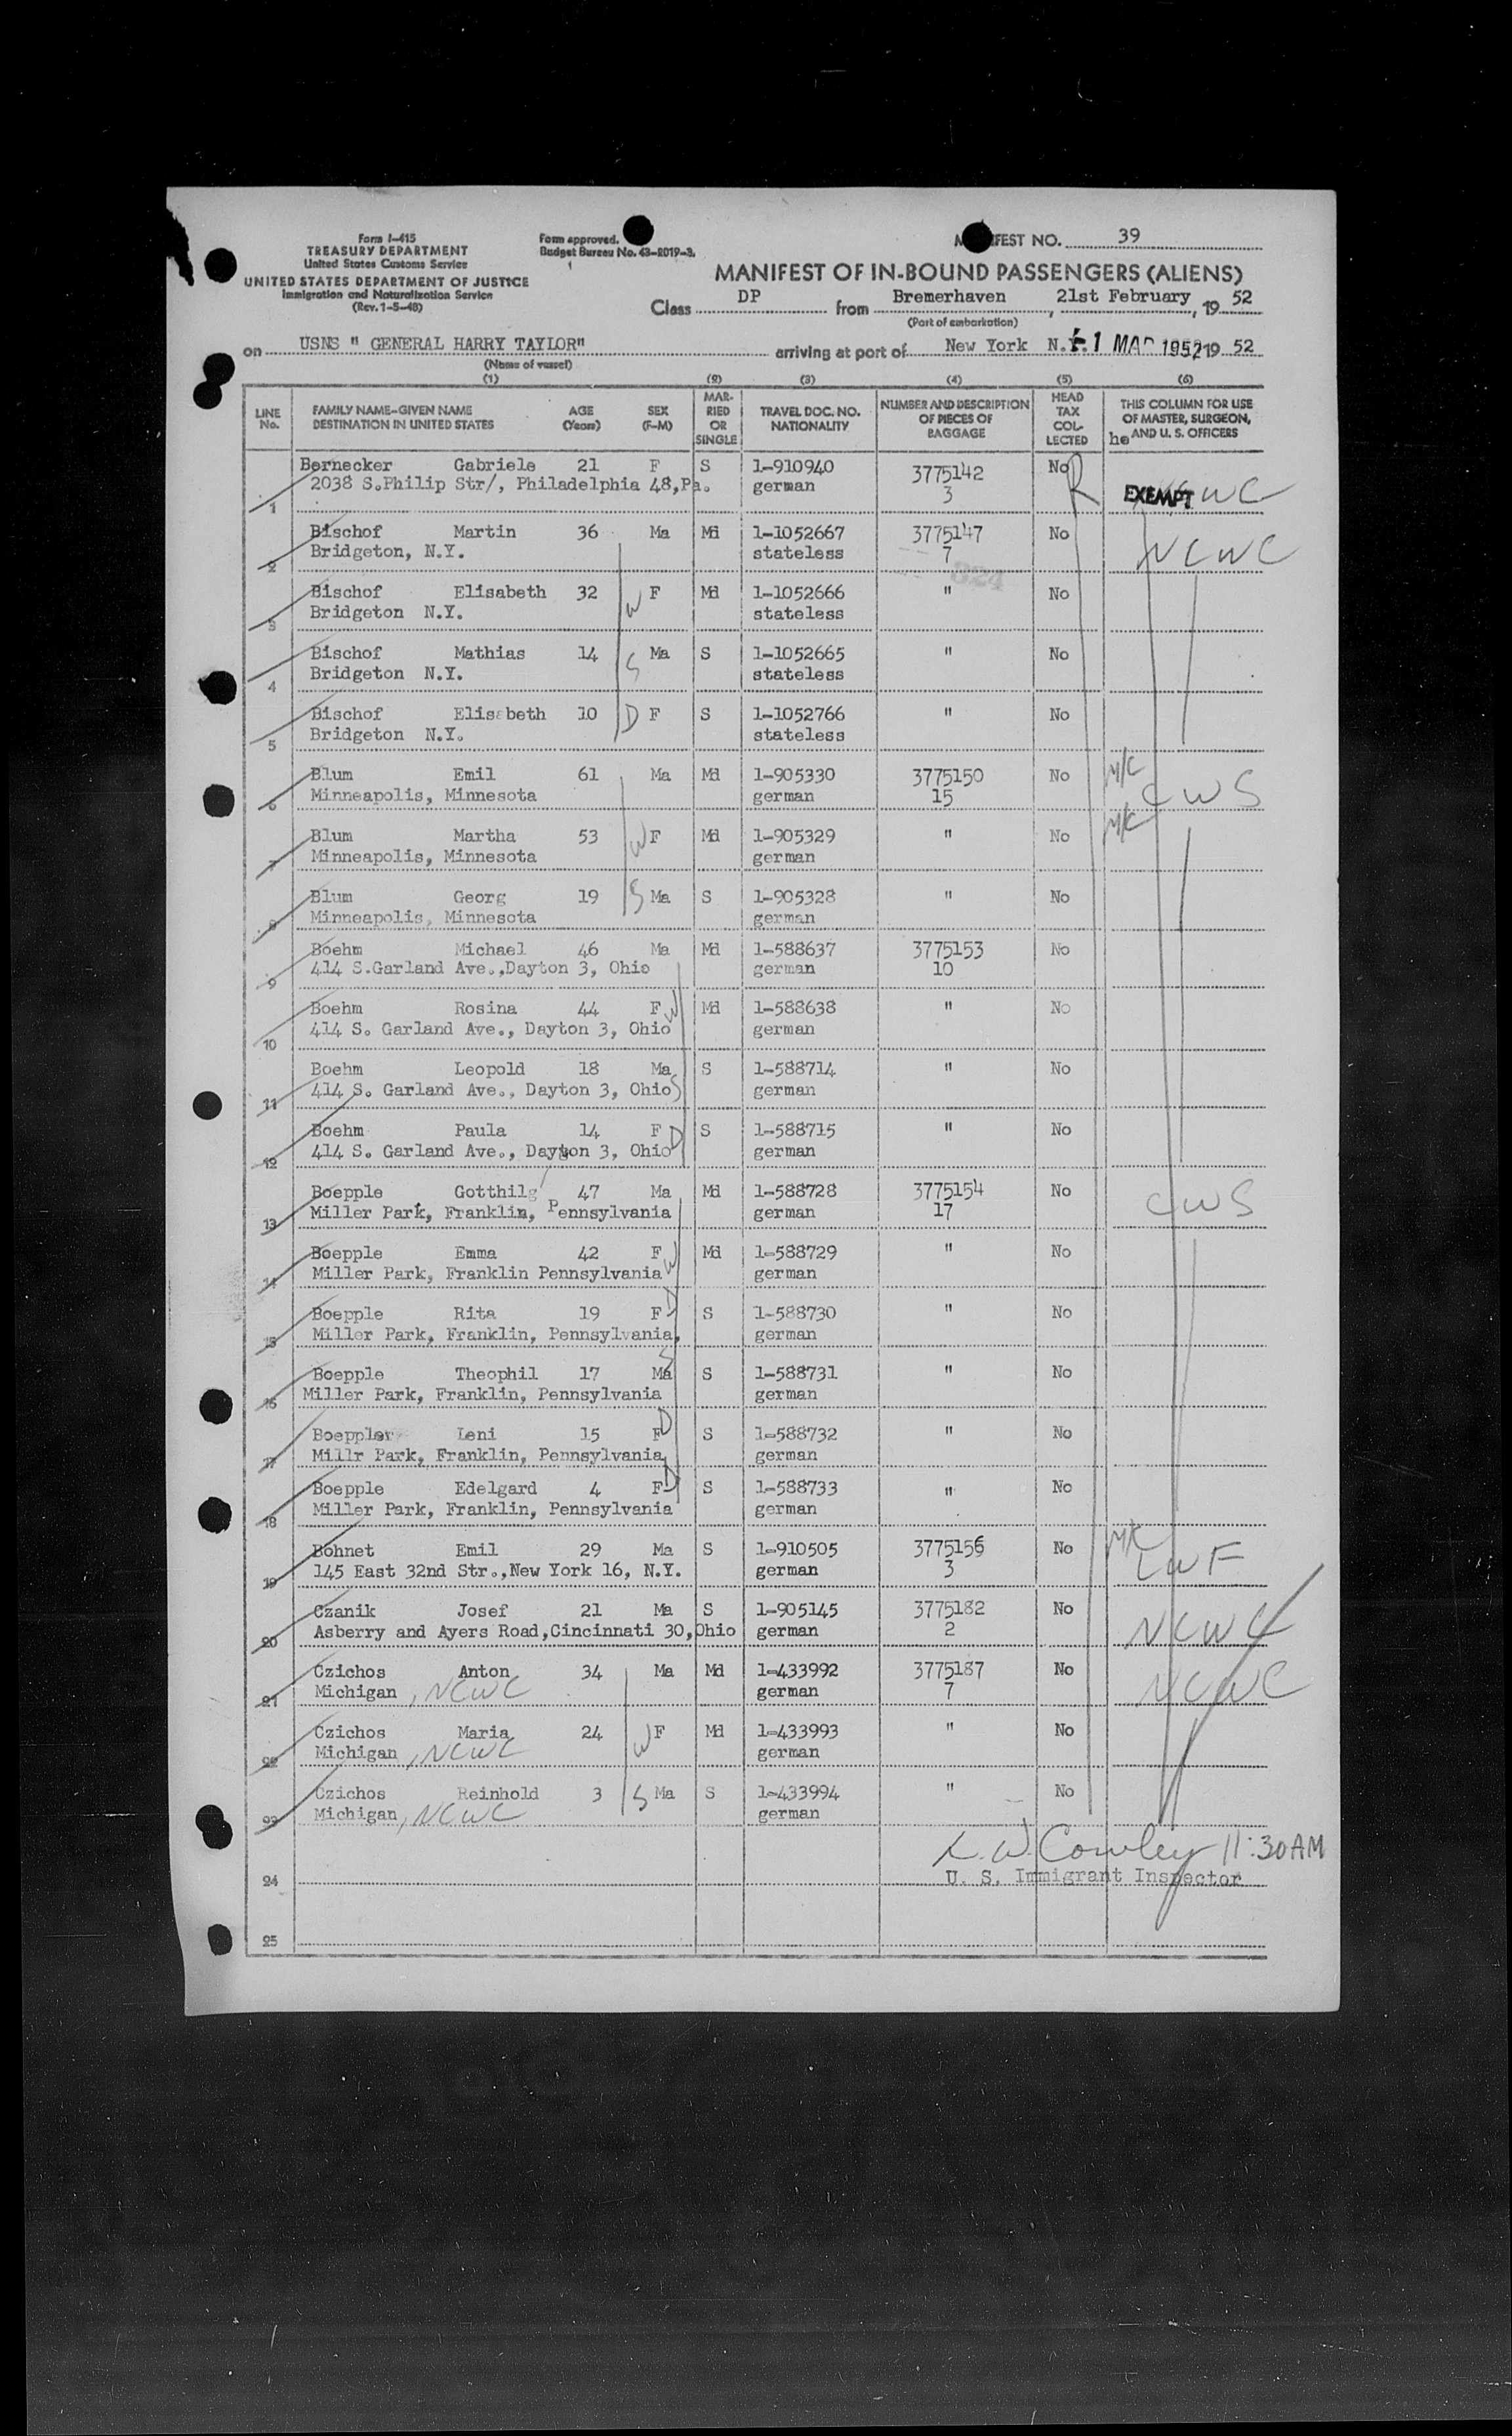 Form I-415
TREASURY DEPARTMENT
United States Customs Service
UNITED STATES DEPARTMENT OF JUSTICE
Immigration and Naturalization Service
(Rev. 1-5-48)
Form approved.
Budget Bureau No. 43-R019-3.
FEST NO. 39
MANIFEST OF IN-BOUND PASSENGERS (ALIENS)
Class DP from Bremerhaven, 21st February, 19 52
(Port of embarkation)
on USNS " GENERAL HARRY TAYLOR" arriving at port of New York N.Y. 1 MAR 1952 19 52
(Name of vessel)
(1) (2) (3) (4) (5) (6)
LINE No. FAMILY NAME-GIVEN NAME DESTINATION IN UNITED STATES AGE (Years) SEX (F-M) MARRIED OR SINGLE TRAVEL DOC. NO. NATIONALITY NUMBER AND DESCRIPTION OF PIECES OF BAGGAGE HEAD TAX COLLECTED THIS COLUMN FOR USE OF MASTER, SURGEON, AND U. S. OFFICERS
he
Bernecker Gabriele 21 F S 1-910940 3775142 No R
1 2038 S.Philip Str/, Philadelphia 48,Pa. german 3 EXEMPT
Bischof Martin 36 Ma Md 1-1052667 3775147 No NCWC
2 Bridgeton, N.Y. stateless 7
824
Bischof Elisabeth 32 W F Md 1-1052666 " No
3 Bridgeton N.Y. stateless
Bischof Mathias 14 S Ma S 1-1052665 " No
4 Bridgeton N.Y. stateless
Bischof Elisabeth 10 D F S 1-1052766 " No
5 Bridgeton N.Y. stateless
Blum Emil 61 Ma Md 1-905330 3775150 No M/C CWS
6 Minneapolis, Minnesota german 15
Blum Martha 53 W F Md 1-905329 " No M/C
7 Minneapolis, Minnesota german
Blum Georg 19 S Ma S 1-905328 " No
8 Minneapolis, Minnesota german
Boehm Michael 46 Ma Md 1-588637 3775153 No
9 414 S.Garland Ave.,Dayton 3, Ohio german 10
Boehm Rosina 44 F W Md 1-588638 " No
10 414 S. Garland Ave., Dayton 3, Ohio german
Boehm Leopold 18 Ma S S 1-588714 " No
11 414 S. Garland Ave., Dayton 3, Ohio german
Boehm Paula 14 F D S 1-588715 " No
12 414 S. Garland Ave., Dayton 3, Ohio german
Boepple Gotthilg 47 Ma Md 1-588728 3775154 No CWS
13 Miller Park, Franklin, Pennsylvania german 17
Boepple Emma 42 F W Md 1-588729 " No
14 Miller Park, Franklin Pennsylvania german
Boepple Rita 19 F D S 1-588730 " No
15 Miller Park, Franklin, Pennsylvania, german
Boepple Theophil 17 Ma S S 1-588731 " No
16 Miller Park, Franklin, Pennsylvania german
Boeppler Leni 15 F D S 1-588732 " No
17 Millr Park, Franklin, Pennsylvania german
Boepple Edelgard 4 F D S 1-588733 " No
18 Miller Park, Franklin, Pennsylvania german
Bohnet Emil 29 Ma S 1-910505 3775156 No LWF
19 145 East 32nd Str.,New York 16, N.Y. german 3
Czanik Josef 21 Ma S 1-905145 3775182 No NCWC
20 Asberry and Ayers Road,Cincinnati 30,Ohio german 2
Czichos Anton 34 Ma Md 1-433992 3775187 No NCWC
21 Michigan, NCWC german 7
Czichos Maria 24 W F Md 1-433993 " No
22 Michigan, NCWC german
Czichos Reinhold 3 S Ma S 1-433994 " No
23 Michigan, NCWC german
L. W. Cowley 11:30AM
24 U. S. Immigrant Inspector
25